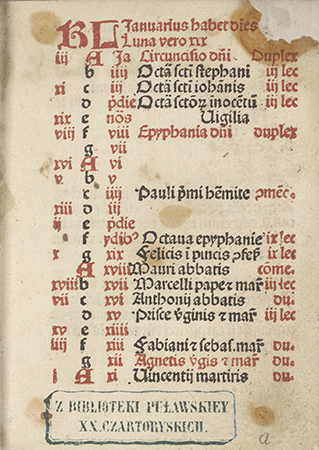 KL Januarius habet dies
Luna vero xxx
iij A Ja Circuncisio dñi Duplex
b iiij Octã scti stephani iij lec
xi c iij Octã scti iohãnis iij lec
d p̃die Octã sctoꝝ inocẽtũ iij lec
xix e nõs Uigilia
viij f viij Epyphania dñi duplex
g vij
xvi A vi
v b v
c iiij Pauli p̃mi hẽmite ꝯmẽc.
xiij d iij
ij e p̃die
f ydib⁹ Octaua epyphanie ix lec
x g xix Felicis i pincis ꝯfeſ. ix lec
A xviij Mauri abbatis come.
xviij b xvij Marcelli pape et mař iij lec
vij c xvi Anthonij abbatis du.
d xv Prisce v̾ginis et mař iij lec
xv e xiiij
iiij f xiij Fabiani et sebas. mař du.
g xij Agnetis v̾gis et mař du.
i A xi Vincentij martiris du.
Z BIBLIOTEKI PUŁAWSKIEY
XX. CZARTORYSKICH.
a